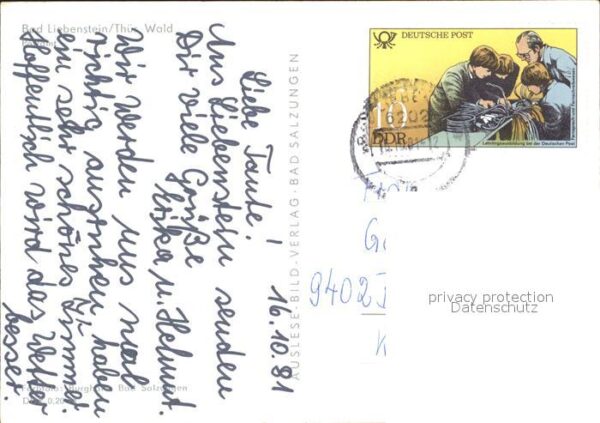 Bad Liebenstein/Thür. Wald
16.10.81
Liebe Tante!
Aus Liebenstein senden
Dir viele Grüße
Erika u. Helmut.
Wir werden uns mal
richtig ausruhen, haben
ein sehr schönes Zimmer.
Hoffentlich wird das Wetter
besser.
Bad Salzungen
AUSLESE-BILD-VERLAG · BAD SALZUNGEN
DEUTSCHE POST
10
DDR
Lehrlingsausbildung bei der Deutschen Post
6202
9402
privacy protection
Datenschutz